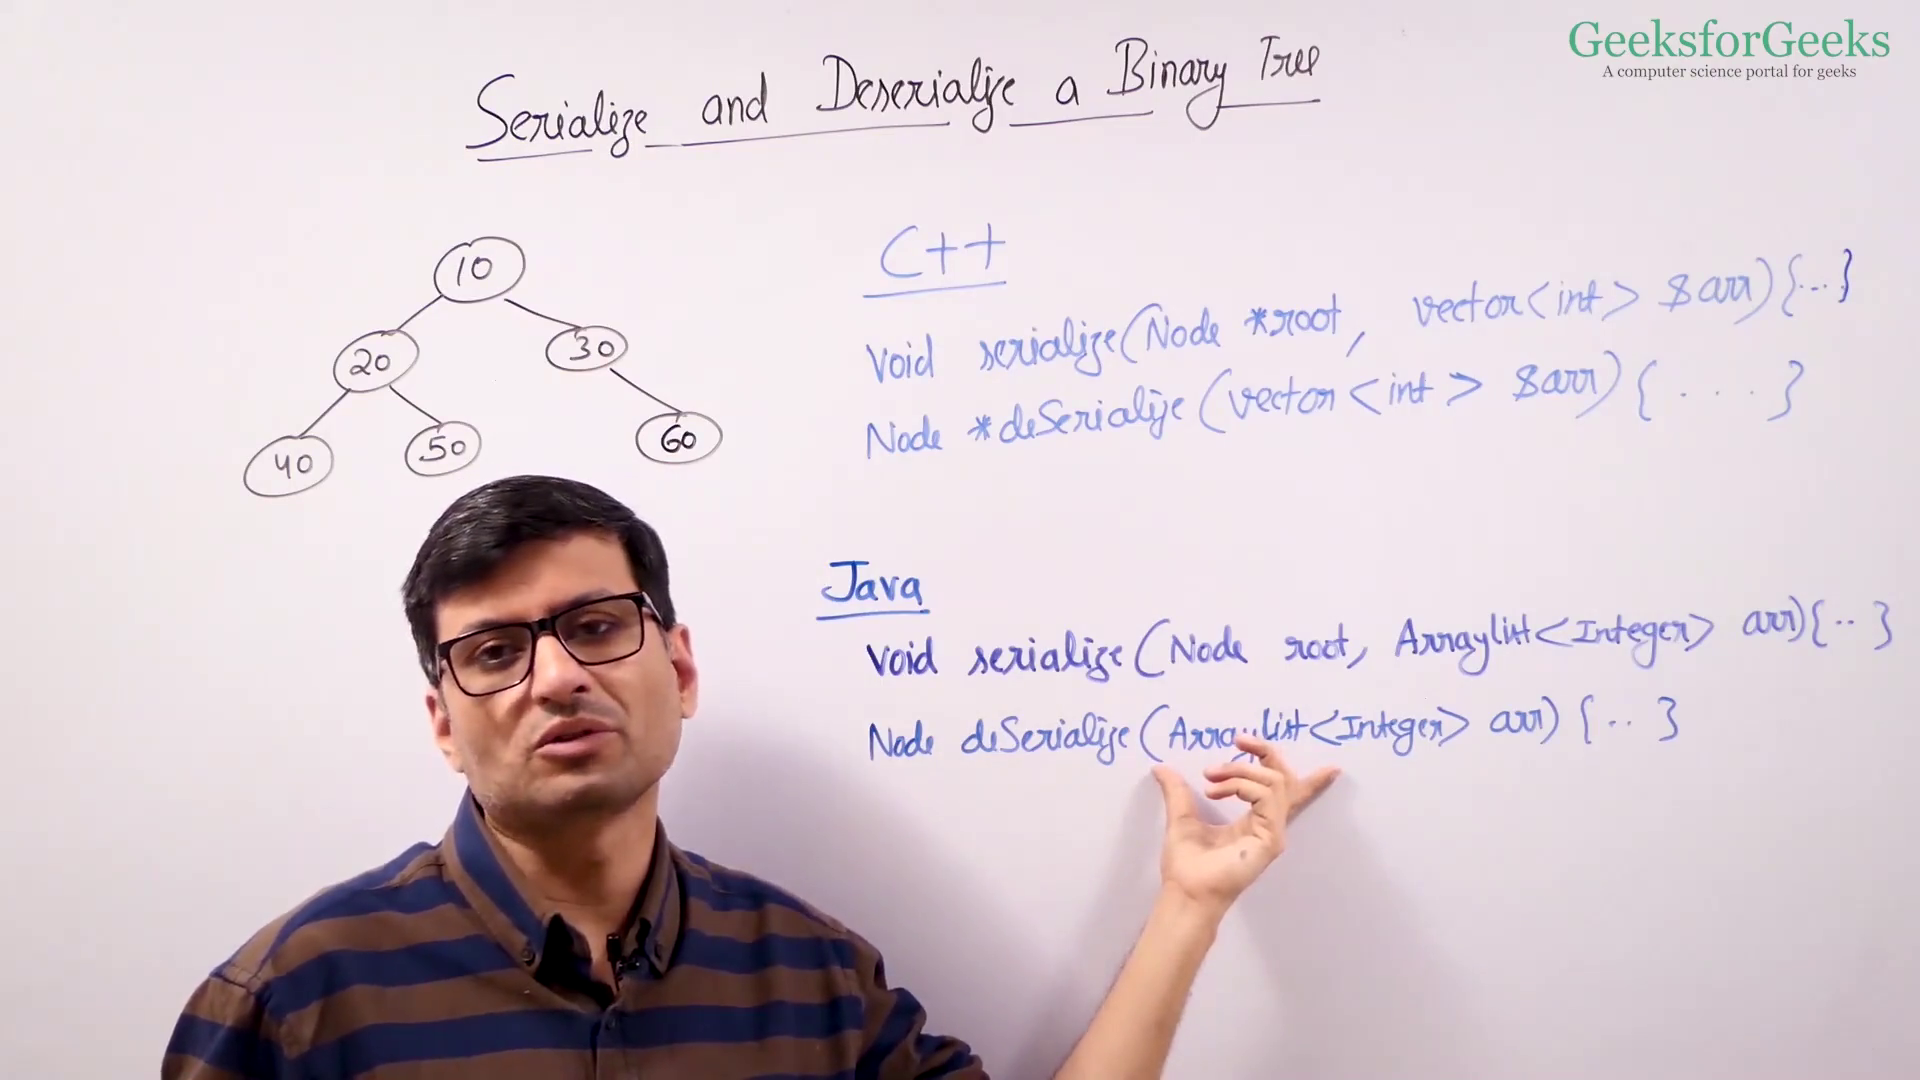 GeeksforGeeks
A computer science portal for geeks
Serialize and Deserialize a Binary Tree
10
20
30
40
50
60
C++
Void serialize(Node *root, vector<int> &arr){...}
Node *deSerialize(vector<int> &arr){ . . . . }
Java
Void serialize(Node root, Arraylist<Integer> arr){..}
Node deSerialize(Arraylist<Integer> arr) {...}